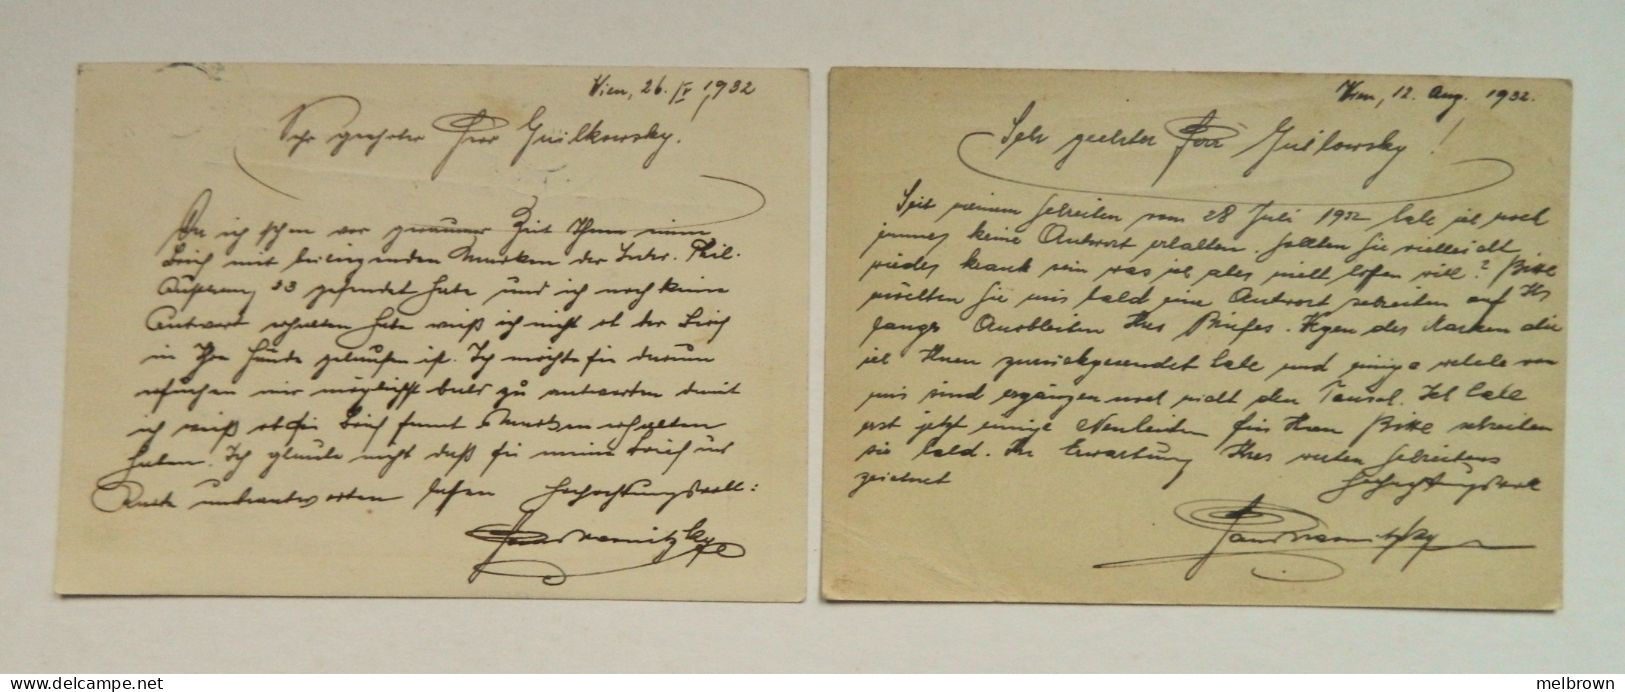 Wien, 26. IV 1932
Sehr geehrter Herr Guilkowsky.
Da ich schon vor geraumer Zeit Ihnen einen
Brief mit beiliegenden Marken der Inter. Phil.
Ausstellung 33 gesendet habe und ich noch keine
Antwort erhalten habe weiß ich nicht ob der Brief
in Ihre Hände gelaufen ist. Ich möchte sie darum
ersuchen mir möglichst bald zu antworten damit
ich weiß ob sie Brief samt Marken erhalten
haben. Ich glaube nicht daß sie meine Brief und
Karte unbeantworten lassen Hochachtungsvoll:
Wien, 12. Aug. 1932.
Sehr geehrter Herr Guilowsky!
Seit meinem Schreiben vom 28 Juli 1932 habe ich noch
immer keine Antwort erhalten. Sollten Sie vielleicht
wieder krank sein was ich aber nicht hoffen will? Bitte
möchten Sie mir bald eine Antwort schreiben auf Ihr
langes Ausbleiben Ihres Briefes. Wegen der Marken die
ich Ihnen zurückgesendet habe und einige welche von
mir sind ergänzen noch nicht den Tausch. Ich habe
erst jetzt einige Neuheiten für Ihnen Bitte schreiben
sie bald. In Erwartung Ihres werten Schreibens
zeichnet Hochachtungsvoll
delcampe.net
melbrown